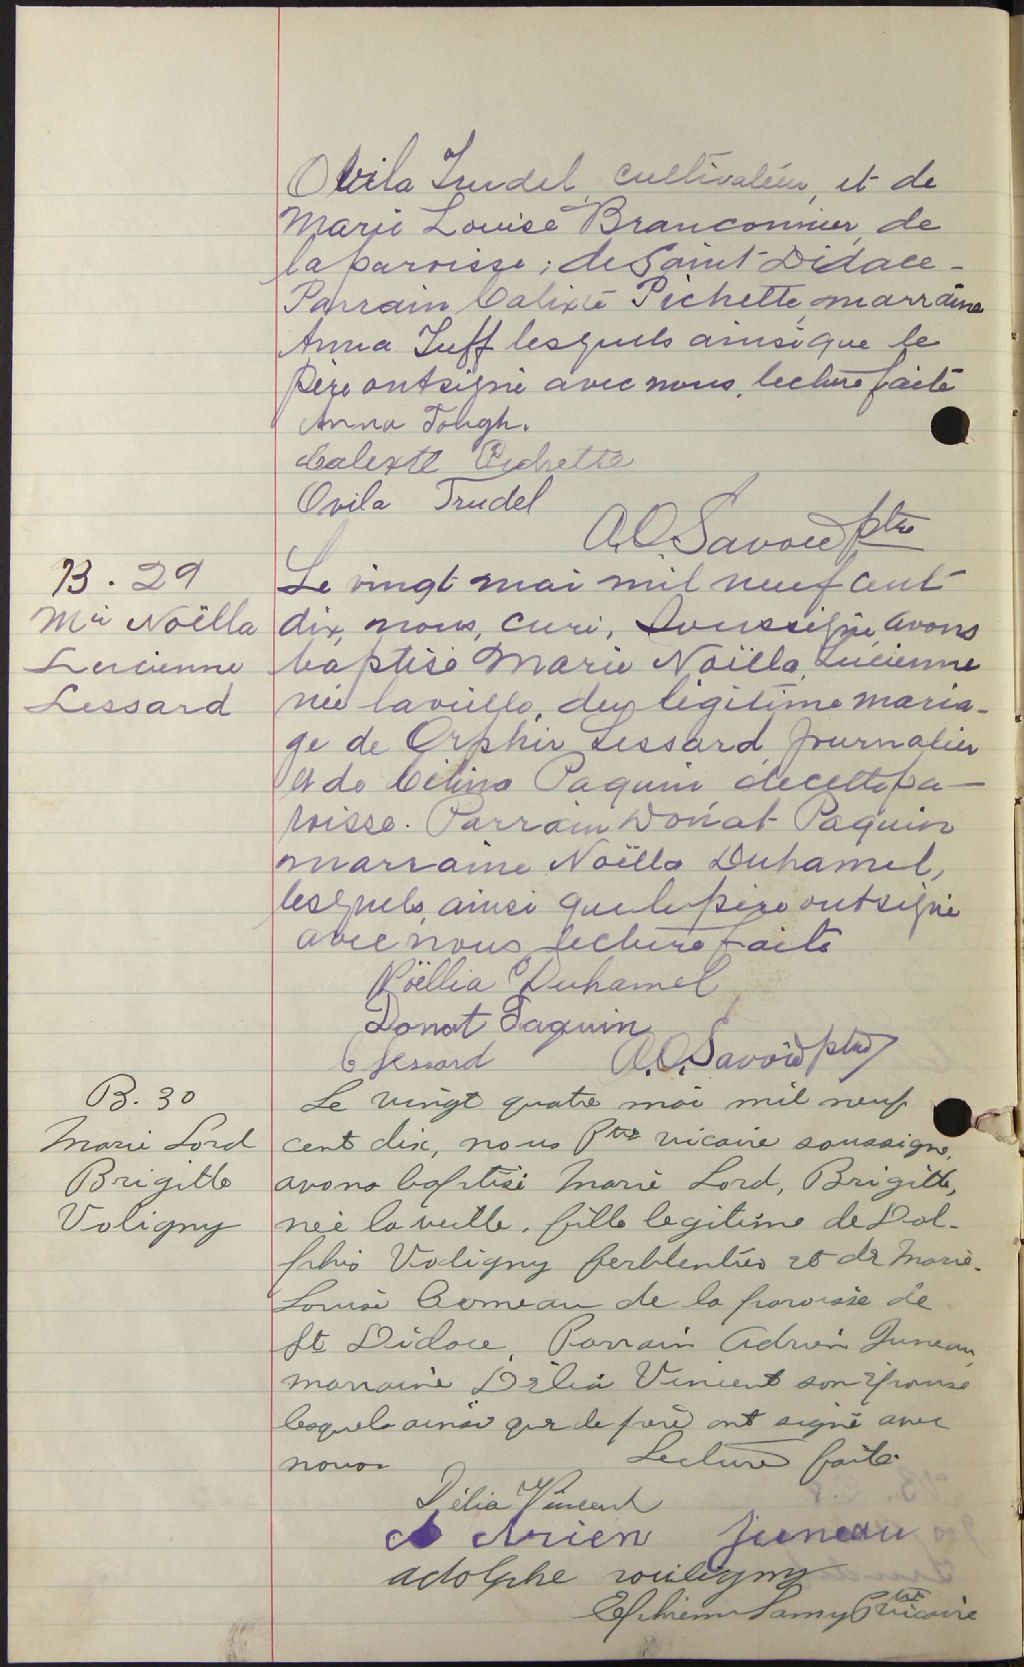 Ovila Trudel, cultivateur, et de
Marie Louise Branconnier, de
la paroisse; de Saint Didace -
Parrain Calixte Pichette, marraine
Anna Tuff lesquels ainsi que le
père ont signé avec nous, lecture faite
Anna Tough.
Calexte Pichette
Ovila Trudel
A.O. Savoie ptre
B. 29
Mie Noëlla
Lucienne
Lessard
Le vingt mai mil neuf cent
dix, nous, curé, soussigné, avons
baptisé Marie Noëlla, Lucienne
née la veille, du légitime maria-
ge de Orphir Lessard, journalier
et de Célina Paquin de cette pa-
roisse. Parrain Donat Paquin
marraine Noëlla Duhamel,
lesquels, ainsi que le père ont signé
avec nous, lecture faite
Noëllia Duhamel
Donat Paquin
O Lessard
A.O. Savoie ptre
B. 30
Marie Lord
Brigitte
Voligny
Le vingt quatre mai mil neuf
cent dix, nous Ptre vicaire soussigné,
avons baptisé Marie Lord, Brigitte,
née la veille, fille legitime de Dol-
phis Voligny ferblantier et de Marie-
Louise Comeau de la paroisse de
St Didace, Parrain Adrien Juneau,
marraine Délia Vincent son épouse
lesquels ainsi que le père ont signé avec
nous. Lecture faite.
Délia Vincent
Adrien Juneau
adolphe vouligny
Ephrem Lamy Ptre vicaire